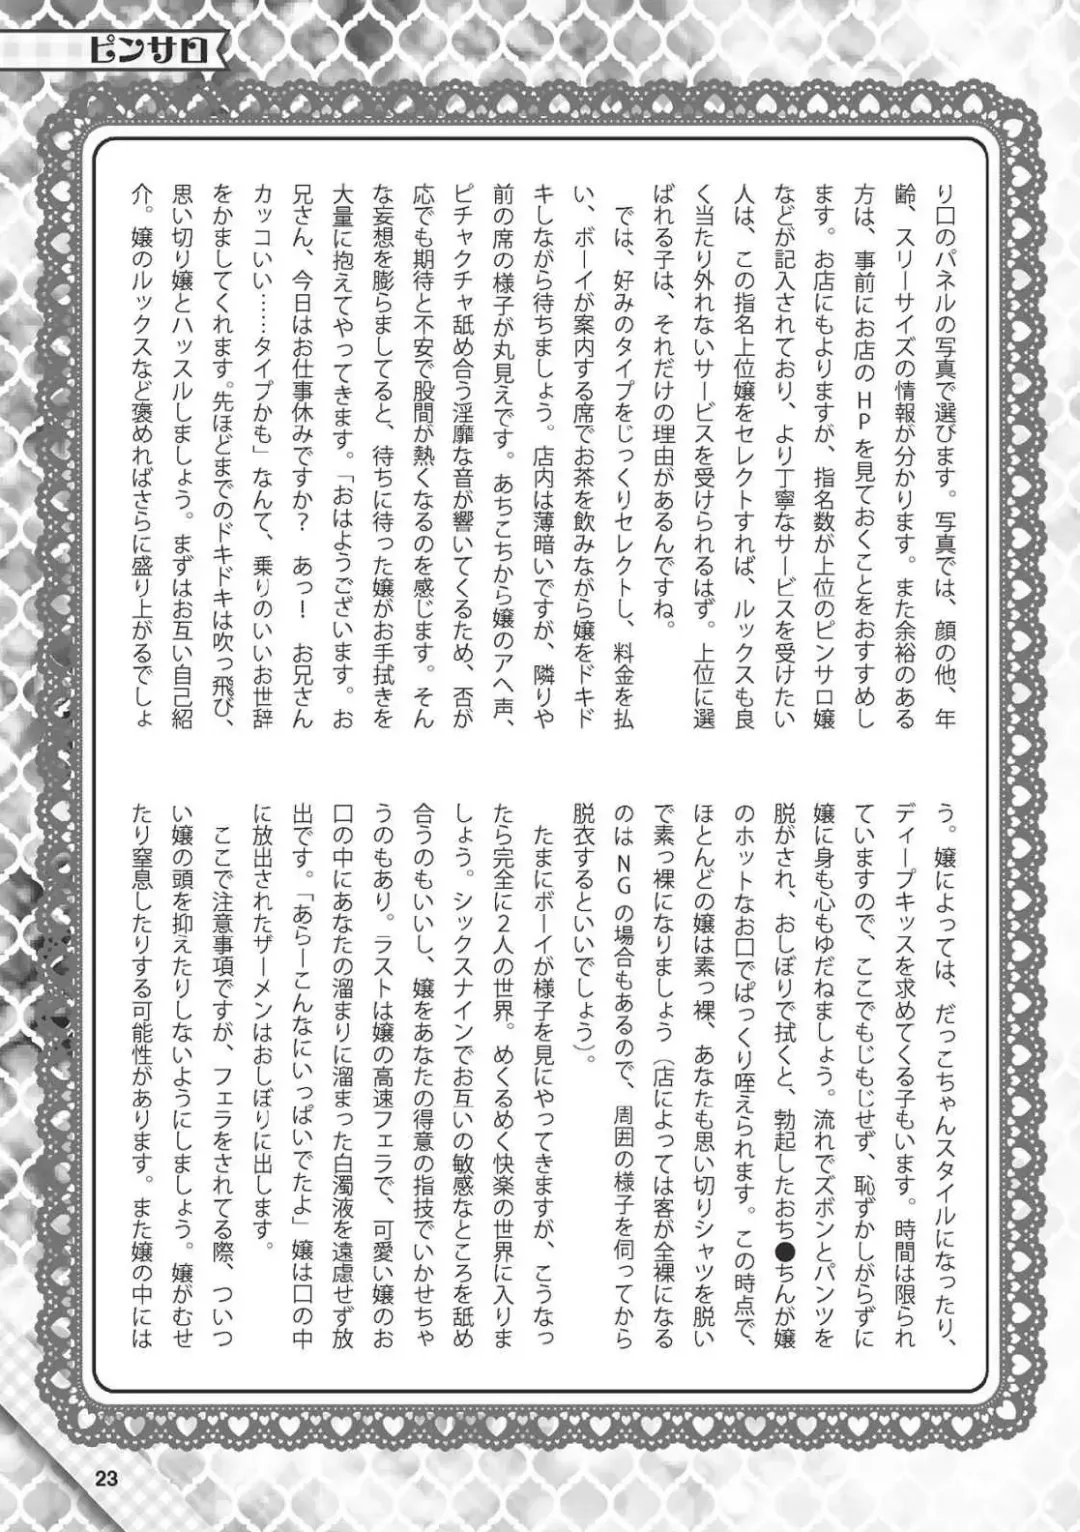 ピンサロ
り口のパネルの写真で選びます。写真では、顔の他、年
齢、スリーサイズの情報が分かります。また余裕のある
方は、事前にお店のHPを見ておくことをおすすめし
ます。お店にもよりますが、指名数が上位のピンサロ嬢
などが記入されており、より丁寧なサービスを受けたい
人は、この指名上位嬢をセレクトすれば、ルックスも良
く当たり外れないサービスを受けられるはず。上位に選
ばれる子は、それだけの理由があるんですね。
では、好みのタイプをじっくりセレクトし、料金を払
い、ボーイが案内する席でお茶を飲みながら嬢をドキド
キしながら待ちましょう。店内は薄暗いですが、隣りや
前の席の様子が丸見えです。あちこちから嬢のアへ声、
ピチャクチャ舐め合う淫靡な音が響いてくるため、否が
応でも期待と不安で股間が熱くなるのを感じます。そん
な妄想を膨らましてると、待ちに待った嬢がお手拭きを
大量に抱えてやってきます。「おはようございます。お
兄さん、今日はお仕事休みですか？　あっ！　お兄さん
カッコいい……タイプかも」なんて、乗りのいいお世辞
をかましてくれます。先ほどまでのドキドキは吹っ飛び、
思い切り嬢とハッスルしましょう。まずはお互い自己紹
介。嬢のルックスなど褒めればさらに盛り上がるでしょ
う。嬢によっては、だっこちゃんスタイルになったり、
ディープキッスを求めてくる子もいます。時間は限られ
ていますので、ここでもじもじせず、恥ずかしがらずに
嬢に身も心もゆだねましょう。流れでズボンとパンツを
脱がされ、おしぼりで拭くと、勃起したおち●ちんが嬢
のホットなお口でぱっくり咥えられます。この時点で、
ほとんどの嬢は素っ裸、あなたも思い切りシャツを脱い
で素っ裸になりましょう（店によっては客が全裸になる
のはNGの場合もあるので、周囲の様子を伺ってから
脱衣するといいでしょう）。
たまにボーイが様子を見にやってきますが、こうなっ
たら完全に2人の世界。めくるめく快楽の世界に入りま
しょう。シックスナインでお互いの敏感なところを舐め
合うのもいいし、嬢をあなたの得意の指技でいかせちゃ
うのもあり。ラストは嬢の高速フェラで、可愛い嬢のお
口の中にあなたの溜まりに溜まった白濁液を遠慮せず放
出です。「あらーこんなにいっぱいでたよ」嬢は口の中
に放出されたザーメンはおしぼりに出します。
ここで注意事項ですが、フェラをされてる際、ついつ
い嬢の頭を抑えたりしないようにしましょう。嬢がむせ
たり窒息したりする可能性があります。また嬢の中には
23